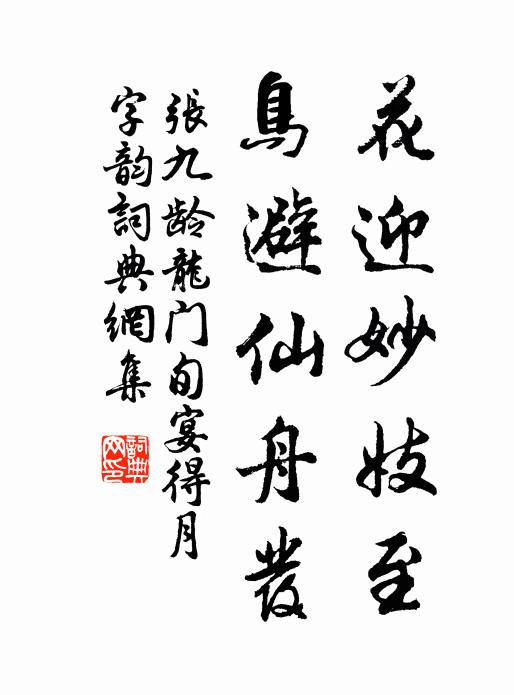 花迎妙妓至
鳥避仙舟發
張九龄龍门旬宴得月
字韵詞典網集
詞典
网印